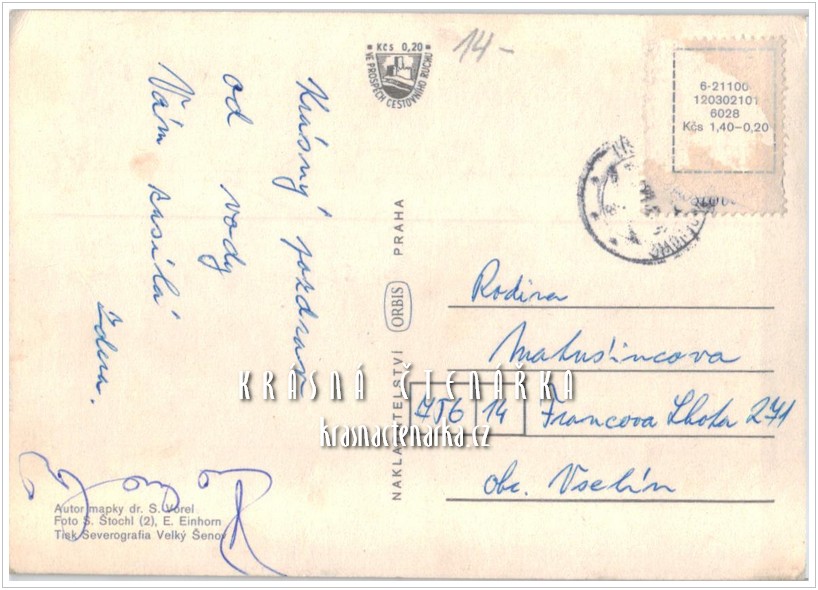 Kčs 0,20
VE PROSPĚCH CESTOVNÍHO RUCHU
14-
6-21100
120302101
6028
Kčs 1,40-0,20
Krásný pozdrav
od vody
Vám zasílá
Zdena.
NAKLADATELSTVÍ ORBIS PRAHA
Rodina
Matušincova
756 14 Francova Lhota 271
obc. Vsetín
KRÁSNÁ ČTENÁŘKA
krasnactenarka.cz
Autor mapky dr. S. Vorel
Foto S. Štochl (2), E. Einhorn
Tisk Severografia Velký Šenov